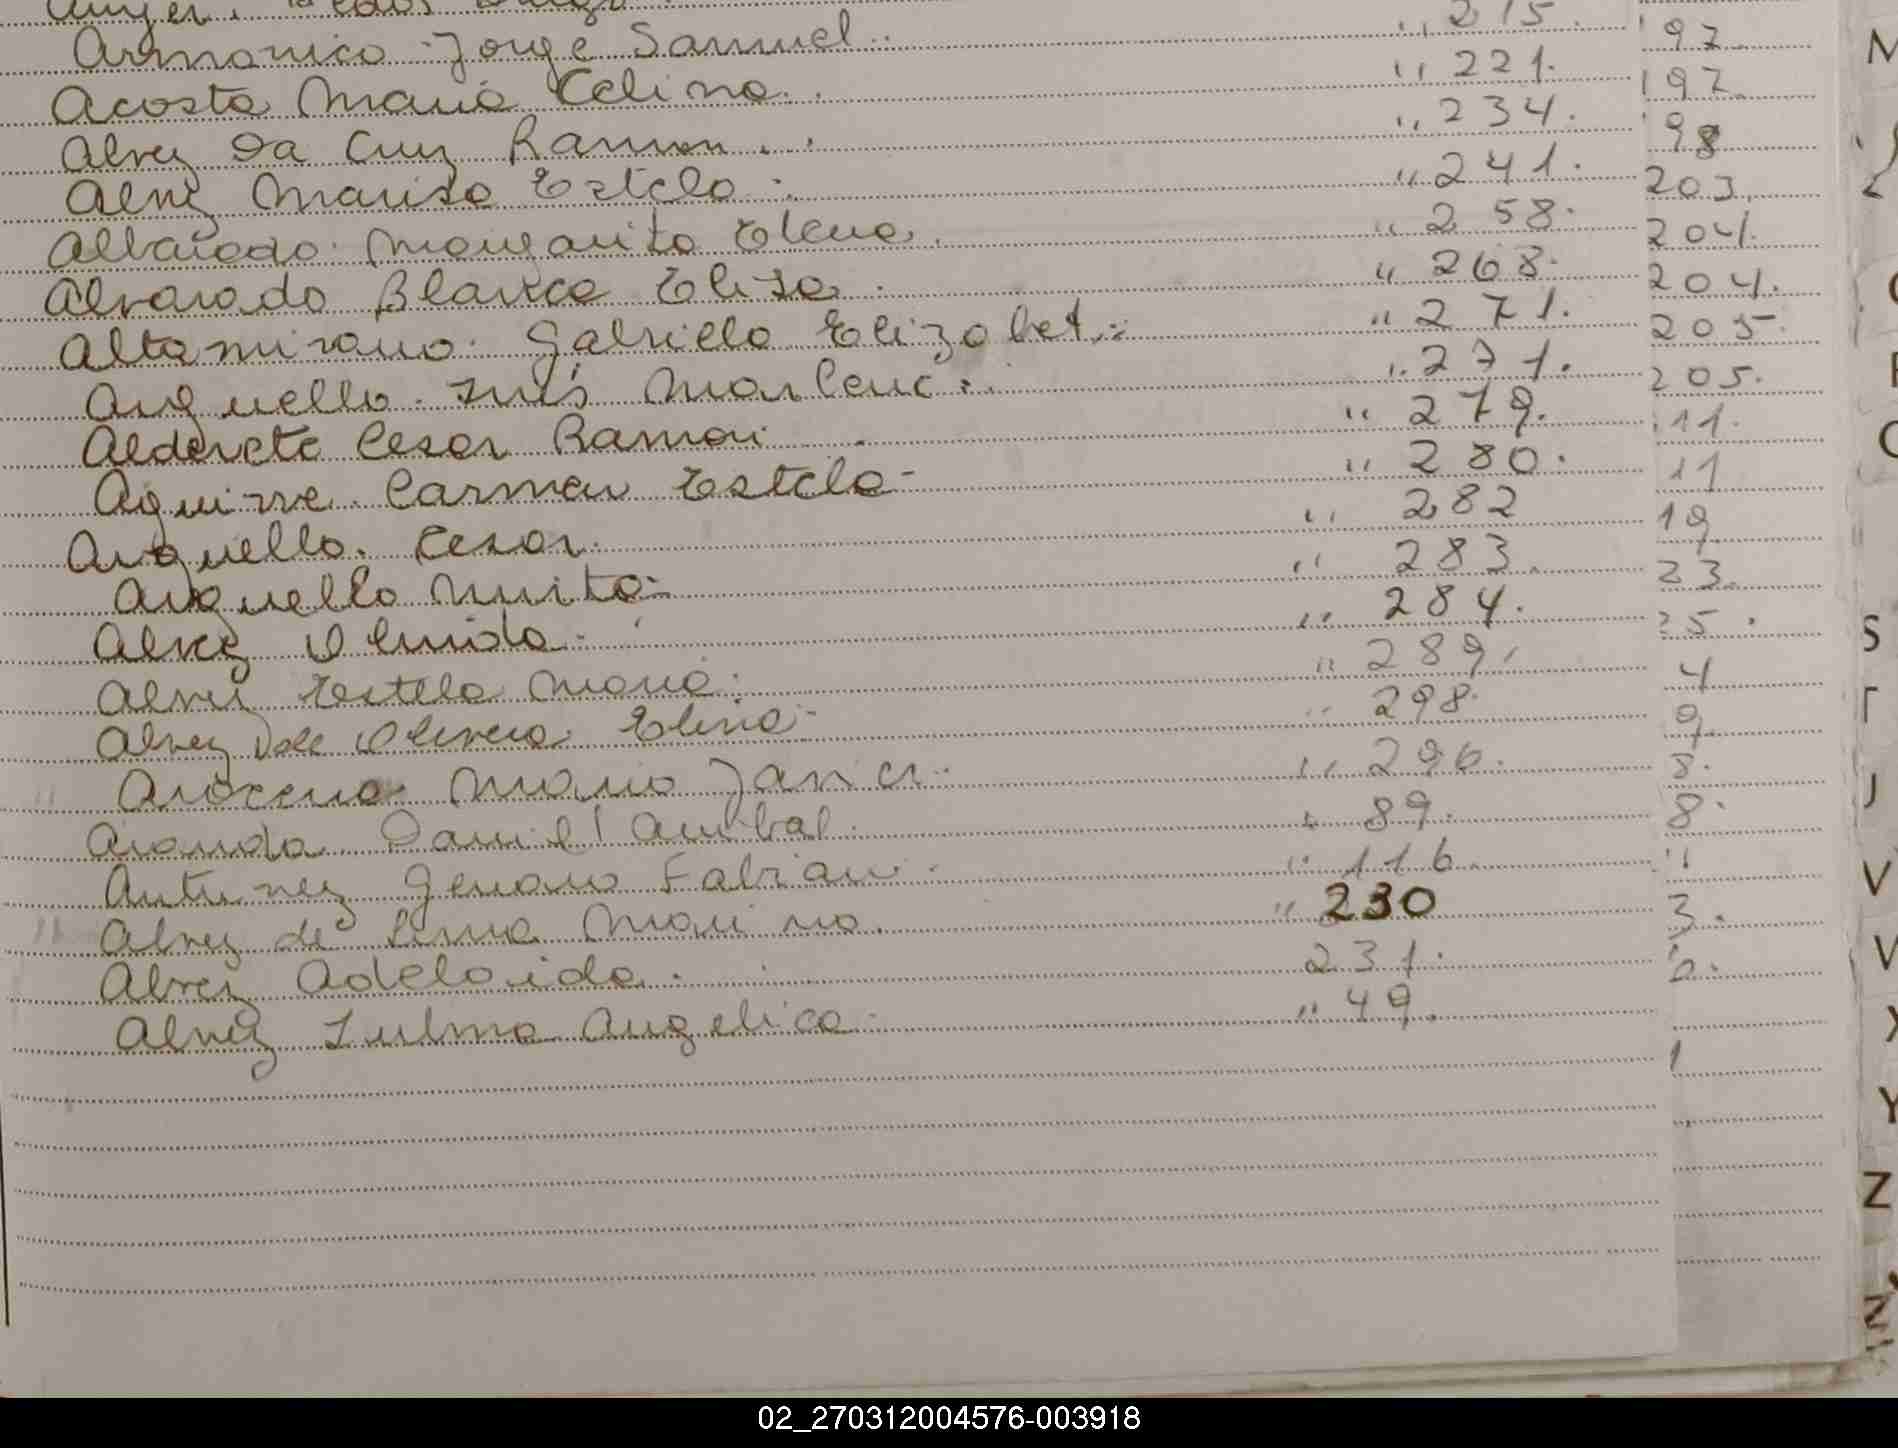 Armonico Jorge Samuel. ,, 215. 197.
Acosta Maria Celina. ,, 221. 197.
Alvez Da Cruz Ramon. ,, 234. 198
Alvez Marisa Estela. ,, 241. 203.
Albarado Margarita Elena. ,, 258. 204.
Alvarado Blanca Elisa. ,, 268. 204.
Altamirano. Gabriela Elizabet. ,, 271. 205.
Arguello. Inés Marlene. ,, 271. 205.
Alderete Cesar Ramon ,, 279. 11.
Aguirre. Carmen Estela- ,, 280. 11
Arguello. Cesar. ,, 282 19
Arguello Mirta- ,, 283. 23.
Alvez Olmida. ,, 284. 25.
Alvez Estela Maria. ,, 289. 4
Alvez Oliveira Elena- ,, 298. 9.
Arocena Mario Javier. ,, 296. 8.
Aranda Daniel Anibal. ,, 89. 8.
Antunez Genaro Fabian. ,, 116.
Alvez de Lima Marina. ,, 230 3.
Alvez Adelaida. 231.
Alvez Zulma Angelica. ,, 49.
M
S
J
V
V
X
Y
Z
Z
02_270312004576-003918